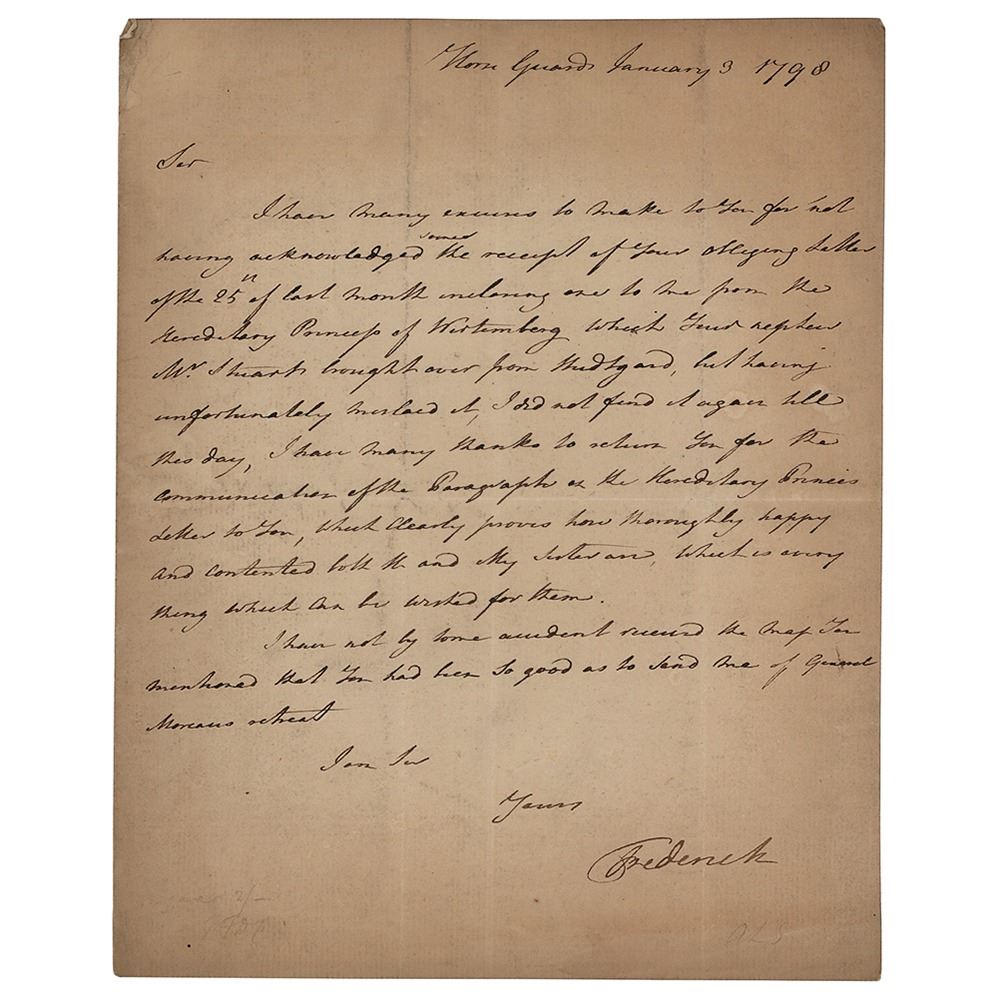 Horse Guards January 3 1798
Sir
I have many excuses to make to You for not
having acknowledged sooner the receipt of Your obliging Letter
of the 25th of last month inclosing one to me from the
Hereditary Princess of Wirtemberg which Your nephew
Mr. Stuart brought over from Studtgard, but having
unfortunately mislaid it, I did not find it again till
this day, I have many thanks to return You for the
communication of the Paragraph in the Hereditary Princes
Letter to You, which clearly proves how thoroughly happy
and contented both He and My Sister are, which is every
thing which can be wished for them.
I have not by some accident received the map You
mentioned that You had been so good as to send me of General
Moreaus retreat
I am Sir
Yours
Frederick
ALS